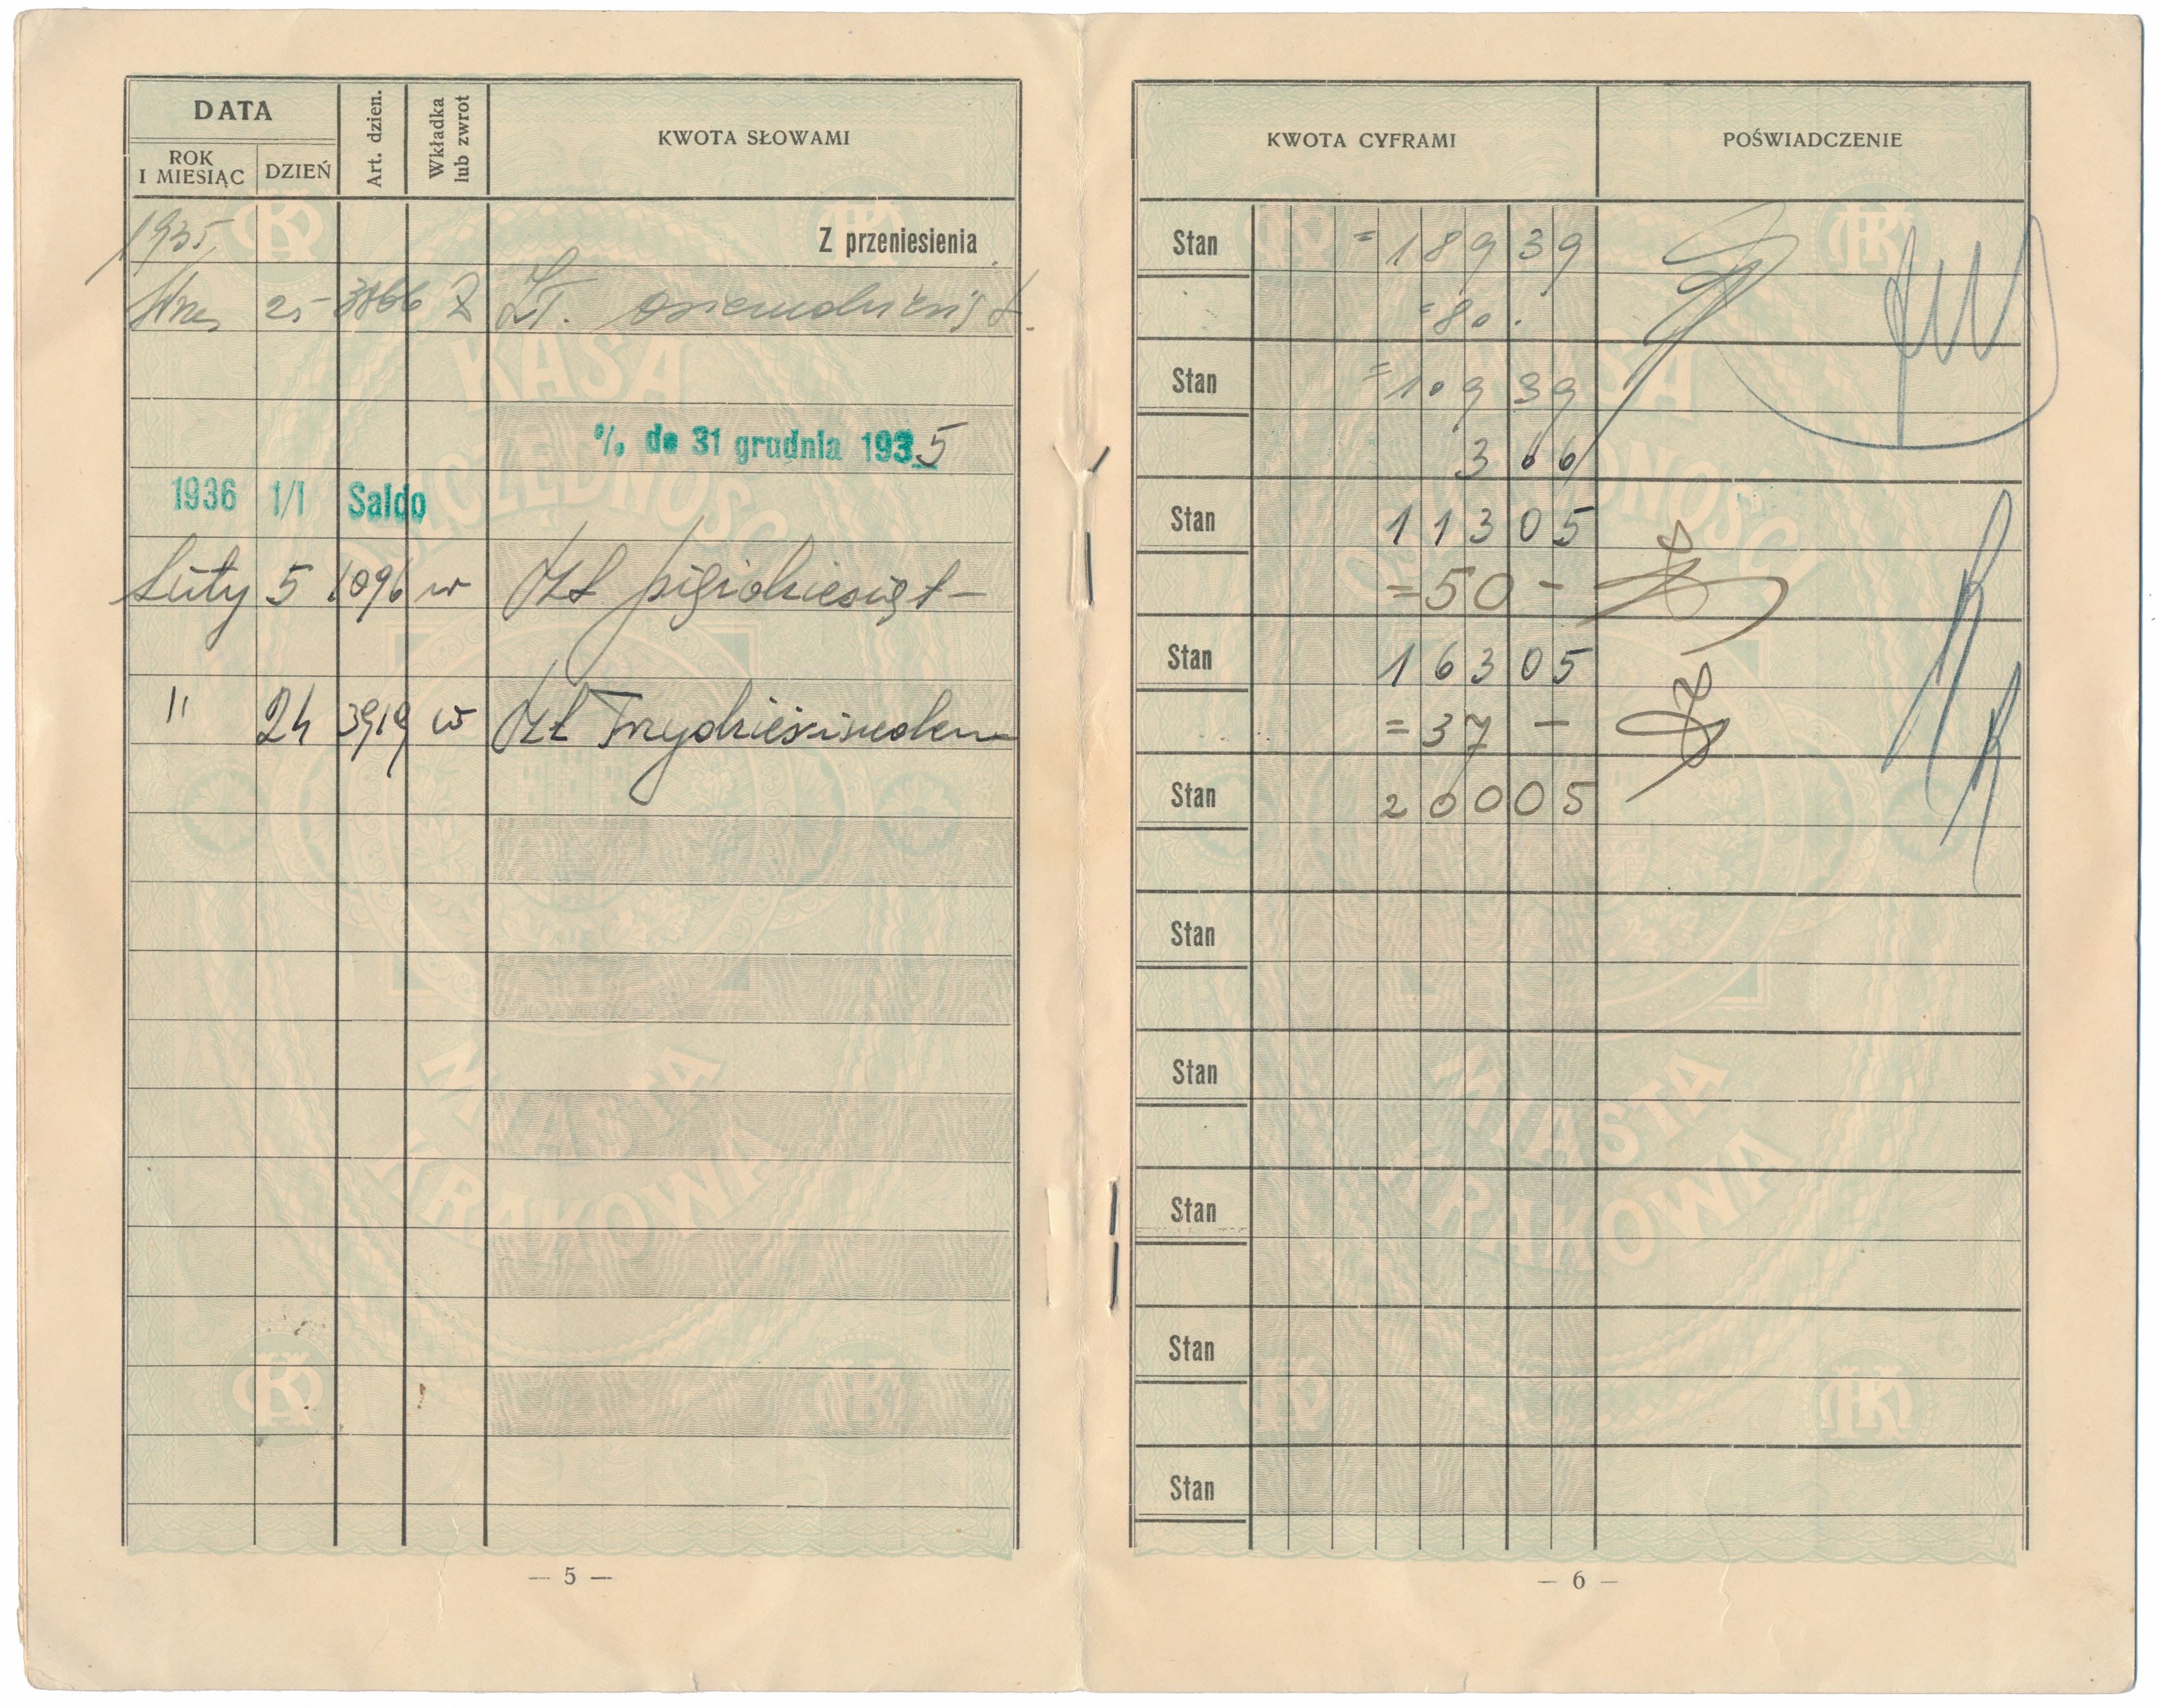 DATA
ROK I MIESIĄC
DZIEŃ
Art. dzien.
Wkładka lub zwrot
KWOTA SŁOWAMI
1935
Z przeniesienia
Wrze 25 3866 Z Zł. osiemdziesiąt
% do 31 grudnia 1935
1936 1/I Saldo
Luty 5 1096 w Zł pięćdziesiąt —
" 24 3919 w Zł Trzydzieścisiedem
KASA
OSZCZĘDNOŚCI
MIASTA
KRAKOWA
— 5 —
KWOTA CYFRAMI
POŚWIADCZENIE
Stan = 189 39
= 80 .
Stan = 109 39
3 66
Stan 113 05
= 50 —
Stan 163 05
= 37 —
Stan 200 05
Stan
Stan
Stan
Stan
Stan
KASA
OSZCZĘDNOŚCI
MIASTA
KRAKOWA
— 6 —